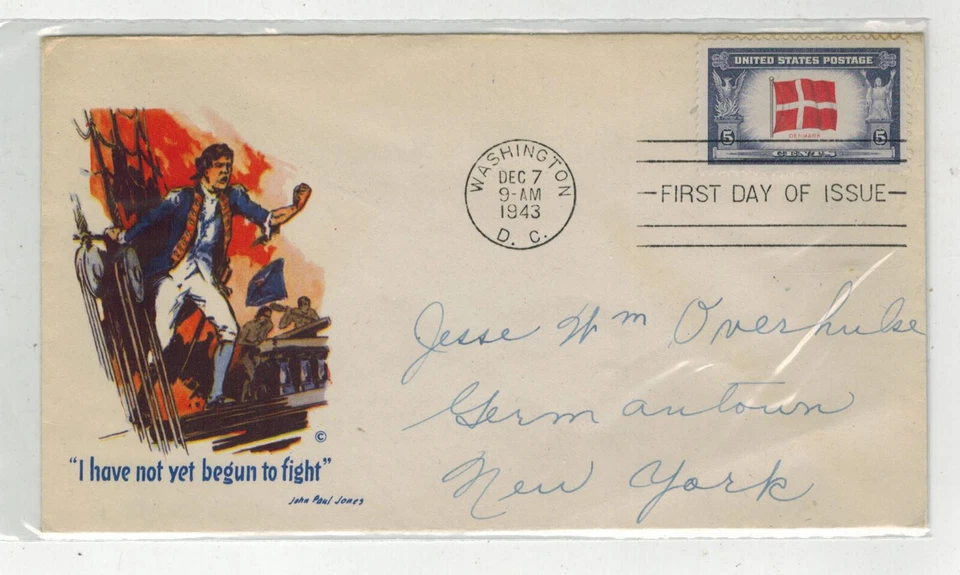 UNITED STATES POSTAGE
DENMARK
5 5
CENTS
WASHINGTON
DEC 7
9-AM
1943
D. C.
FIRST DAY OF ISSUE
Jesse Wm Overhulse
Germantown
New York
©
"I have not yet begun to fight"
John Paul Jones